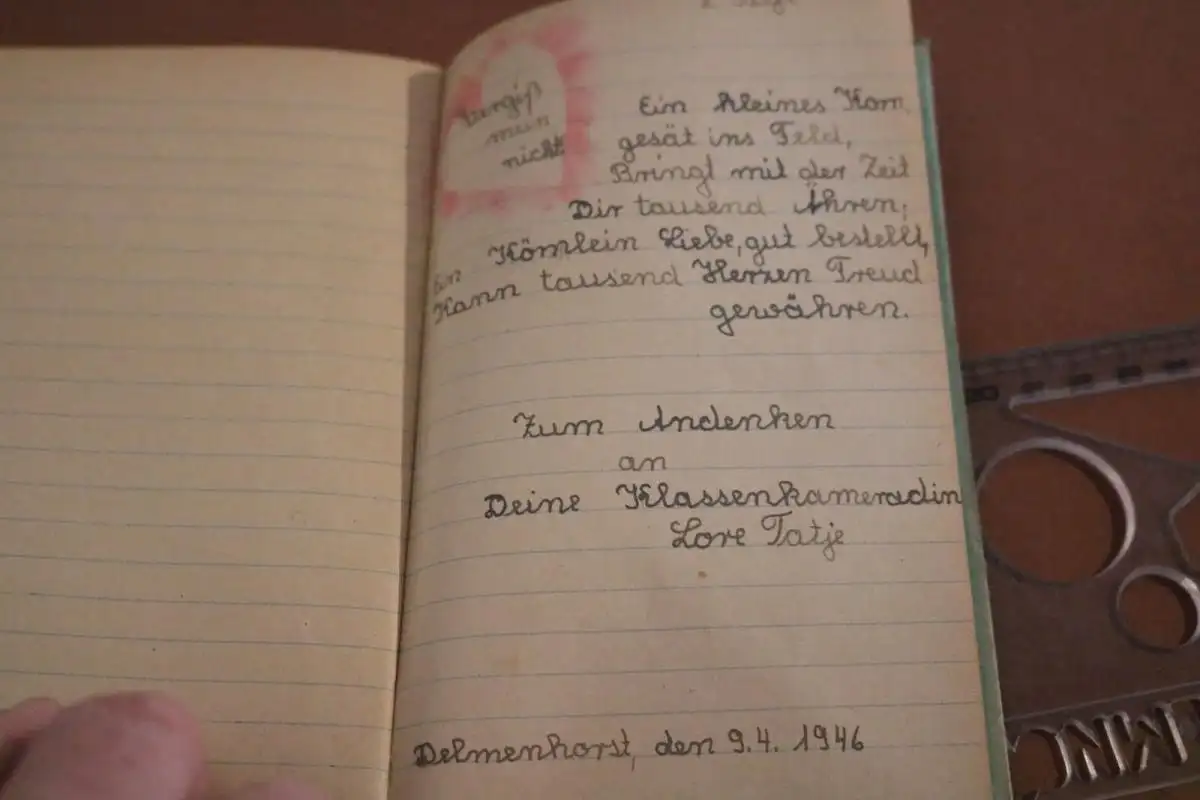 Vergiß
mein
nicht
Ein kleines Korn
gesät ins Feld,
Bringt mit der Zeit
Dir tausend Ähren,
Ein Körnlein Liebe, gut bestellt,
Kann tausend Herzen Freud
gewähren.
Zum Andenken
an
Deine Klassenkameradin
Lore Tatje
Delmenhorst, den 9.4. 1946